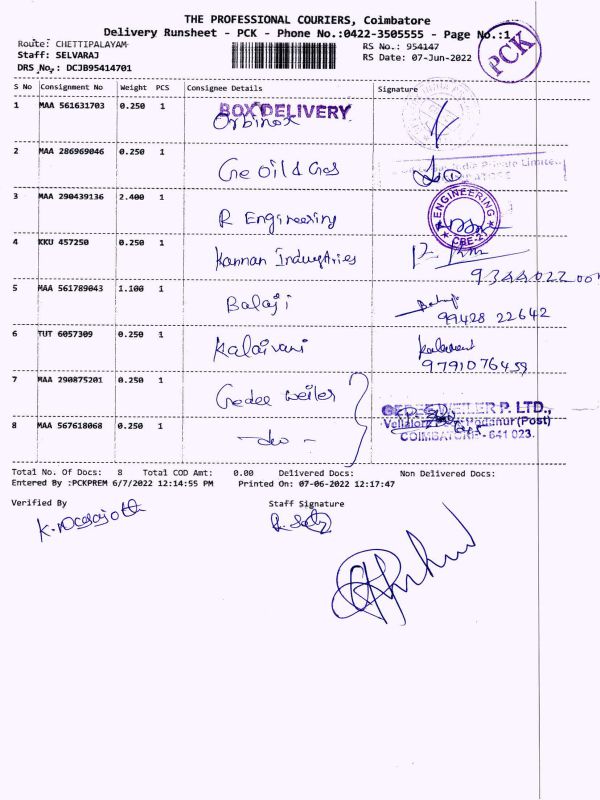 THE PROFESSIONAL COURIERS, Coimbatore
Delivery Runsheet - PCK - Phone No.:0422-3505555 - Page No.:1
Route: CHETTIPALAYAM
RS No.: 954147
Staff: SELVARAJ
RS Date: 07-Jun-2022
DRS No.: DCJB95414701
PCK
S No Consignment No Weight PCS Consignee Details Signature
1 MAA 561631703 0.250 1 BOX DELIVERY
Orbinox
2 MAA 286969046 0.250 1 Ge Oil & Gas
India Private Limite
3 MAA 290439136 2.400 1 R Engineering
ENGINEERING
CBE-21
4 KKU 457250 0.250 1 Kannan Industries
5 MAA 561789043 1.100 1 Balaji
99428 22642
6 TUT 6057309 0.250 1 Kalaivani
9791076459
7 MAA 290875201 0.250 1 Gedee Weiler
GEDEE WEILER P. LTD.,
Podanur (Post)
COIMBATORE - 641 023.
8 MAA 567618068 0.250 1 - do -
Total No. Of Docs: 8 Total COD Amt: 0.00 Delivered Docs: Non Delivered Docs:
Entered By :PCKPREM 6/7/2022 12:14:55 PM Printed On: 07-06-2022 12:17:47
Verified By Staff Signature